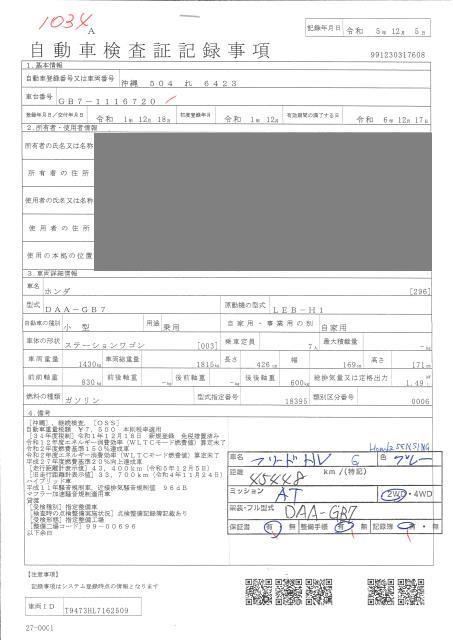 1034
A
記録年月日 令和 5年12月 5日
自動車検査証記録事項
991230317608
1. 基本情報
自動車登録番号又は車両番号 沖縄 504 れ 6423
車台番号 GB7-1116720
登録年月日/交付年月日 令和 1年12月18日 初度登録年月 令和 1年12月 有効期間の満了する日 令和 6年12月17日
2. 所有者・使用者情報
所有者の氏名又は名称
所有者の住所
使用者の氏名又は名称
使用者の住所
使用の本拠の位置
3. 車両詳細情報
車名 ホンダ [296]
型式 DAA-GB7 原動機の型式 LEB-H1
自動車の種別 小型 用途 乗用 自家用・事業用の別 自家用
車体の形状 ステーションワゴン [003] 乗車定員 7人 最大積載量 -kg
車両重量 1430kg 車両総重量 1815kg 長さ 426cm 幅 169cm 高さ 171cm
前前軸重 830kg 前後軸重 -kg 後前軸重 -kg 後後軸重 600kg 総排気量又は定格出力 1.49L
燃料の種類 ガソリン 型式指定番号 18395 類別区分番号 0006
4. 備考
[沖縄], 継続検査, [OSS]
自動車重量税額 ¥7,500 本則税率適用
令和2年度燃費基準150%達成車
平成27年度燃費基準20%向上達成車
[走行距離計表示値] 43,400km (令和5年12月5日)
[旧走行距離計表示値] 33,700km (令和4年11月24日)
ハイブリッド車
平成11年騒音規制車, 近接排気騒音規制値 96dB
マフラー加速騒音規制適用車
[受検種別] 指定整備車
[検査時の点検整備実施状況] 点検整備記録簿記載あり
[受検形態] 指定整備工場
[整備工場コード] 99-00696
以下余白
Honda SENSING
車名 フリード HV G 色 ブルー
距離 45448 km/(特記)
ミッション AT 2WD・4WD
架装・フル型式 DAA-GB7
保証書 有 無 整備手帳 有 無 記録簿 有・無
【注意事項】
記録事項はシステム登録時点の情報となります
車両ID T9473HL7162509
27-0001